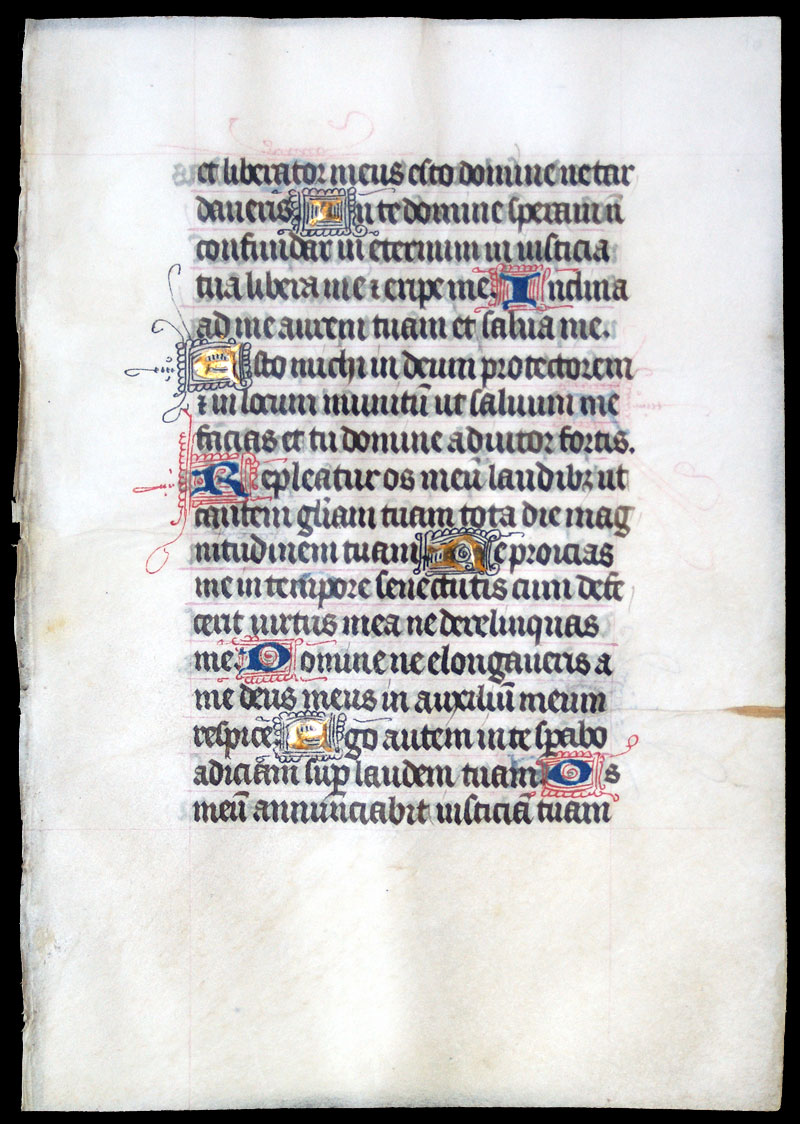 et liberator meus esto domine ne tar
daueris In te domine speraui ñ
confundar in eternum in iusticia
tua libera me ⁊ eripe me. Inclina
ad me aurem tuam et salua me.
Esto michi in deum protectorem
⁊ in locum munitū ut saluum me
facias et tu domine adiutor fortis.
Repleatur os meū laudibꝫ ut
cantem gl̄iam tuam tota die mag
nitudinem tuam Ne proicias
me in tempore senectutis cum defe
cerit uirtus mea ne derelinquas
me. Domine ne elongaueris a
me deus meus in auxiliū meum
respice. Ego autem in te sp̄abo
adiciam sup̄ laudem tuam Os
meū annunciabit iusticiā tuam